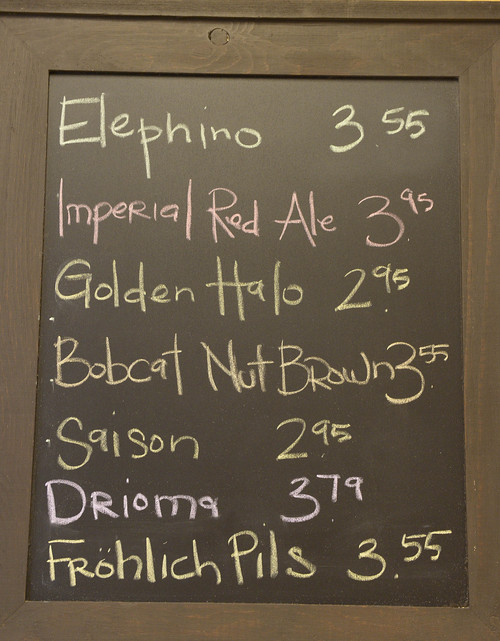 Elephino 3.55
Imperial Red Ale 3.95
Golden Halo 2.95
Bobcat Nut Brown 3.55
Saison 2.95
Drioma 3.79
Fröhlich Pils 3.55